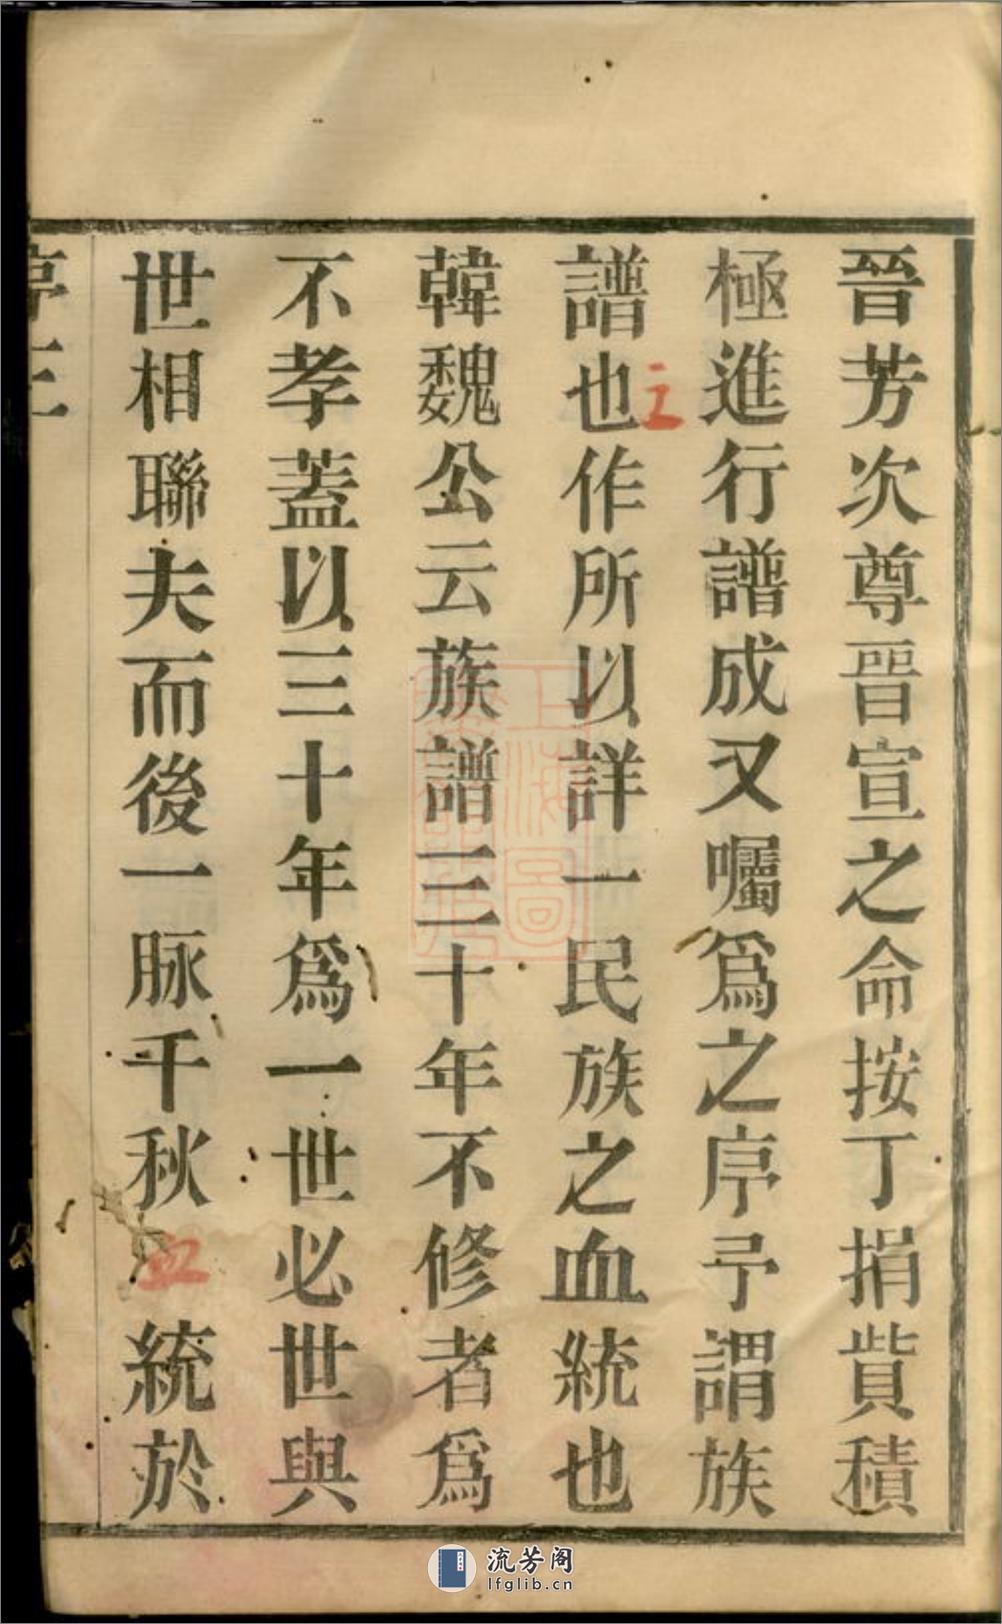 晉芳次尊晉宣之命按丁捐貲積
極進行譜成又囑爲之序予謂族
譜也作所以詳一民族之血統也
主
韓魏公云族譜三十年不修者爲
不孝蓋以三十年爲一世必世與
世相聯夫而後一脉千秋血統於
序三
上海圖
流芳阁
lfglib.cn